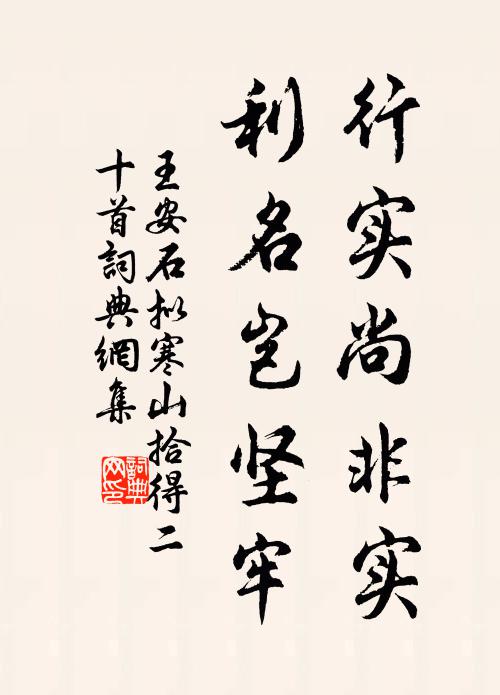 行实尚非实
利名岂坚牢
王安石拟寒山拾得二
十首詞典網集
詞典
网印